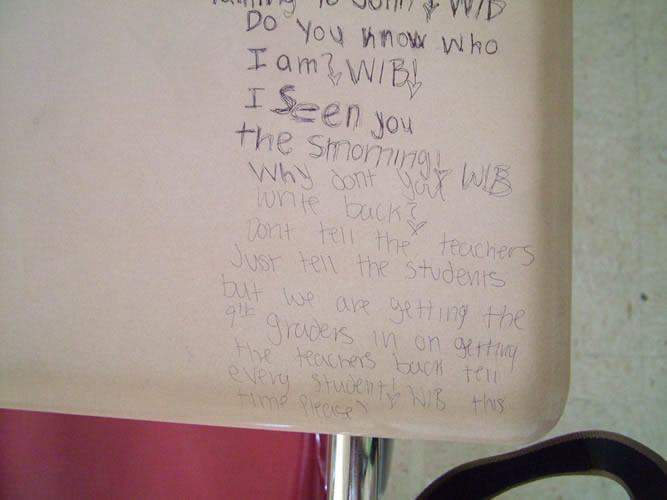 to John! WIB
Do you know who
I am? WIB!
I Seen you
the smorning!
Why dont you WIB
write back?
Dont tell the teachers
Just tell the students
but we are getting the
9th graders in on getting
the teachers back tell
every student! WIB this
time please?